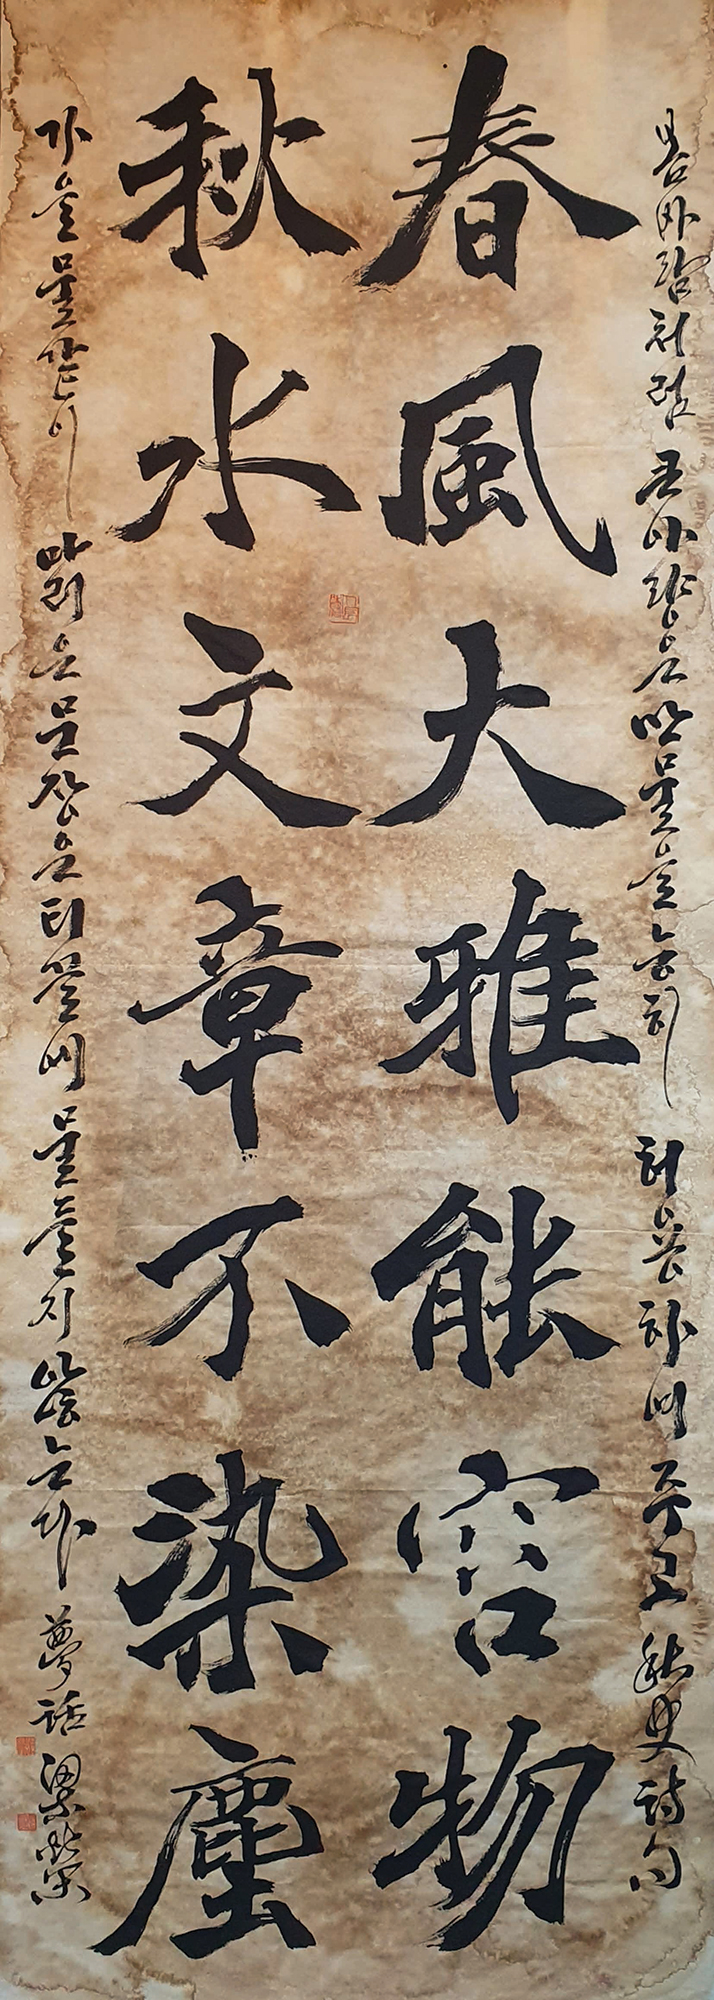 봄바람처럼 큰 아량은 만물을 능히 허용하여 주고 秋史詩句
春風大雅能容物
秋水文章不染塵
가을물같이 맑은 문장은 티끌에 물들지 않는다 夢話 梁榮